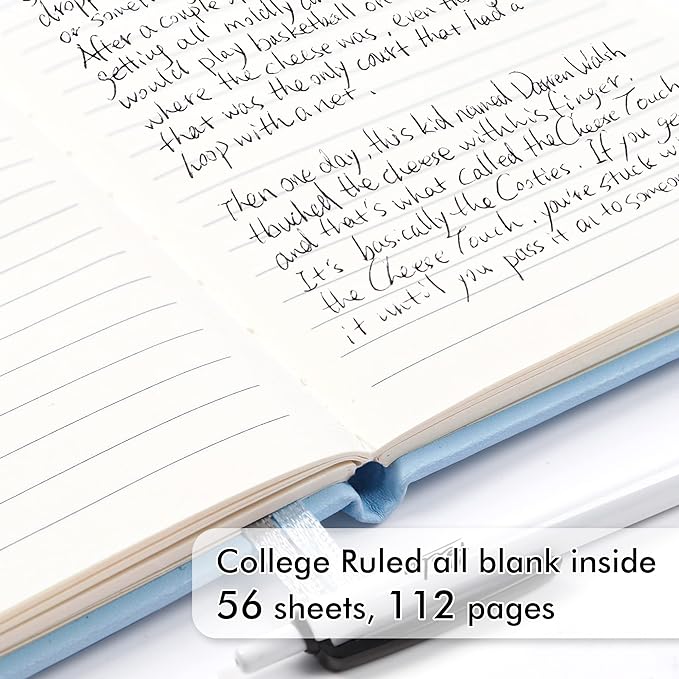 dropp
or somet
After a couple
getting all moldly a
would play basketball on
where the cheese was, even th
that was the only court that had a
hoop with a net.
Then one day, this kid named Darren Walsh
touched the cheese with his finger.
and that's what called the Cheese Touch
It's basically the Cooties. If you ge
the Cheese Touch, you're stuck wi
it until you pass it on to someon
College Ruled all blank inside
56 sheets, 112 pages